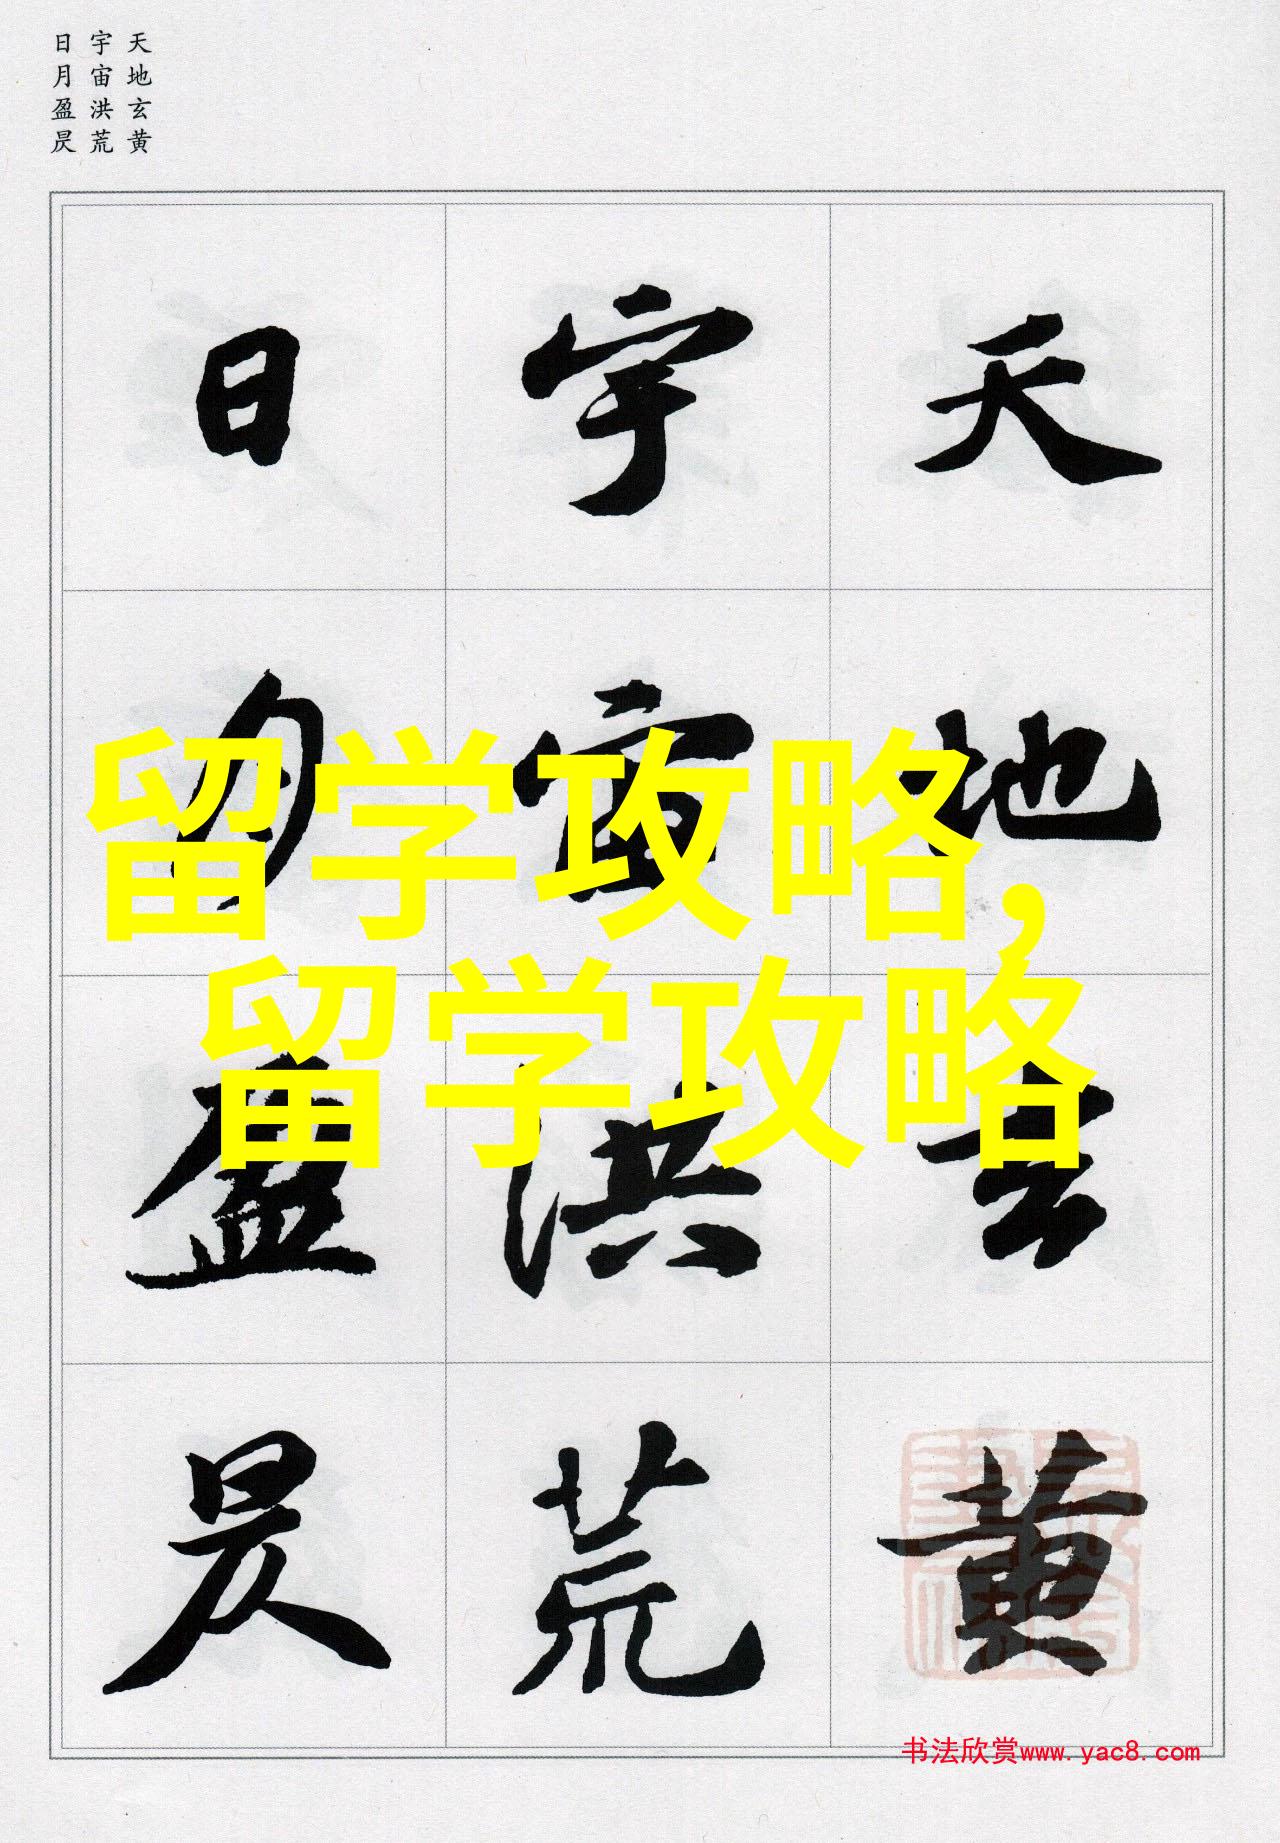 天地玄黄
宇宙洪荒
日月盈昃
天地玄黄
宇宙洪荒
日月盈昃
留学攻略，
留学攻略
书法欣赏www.yac8.com